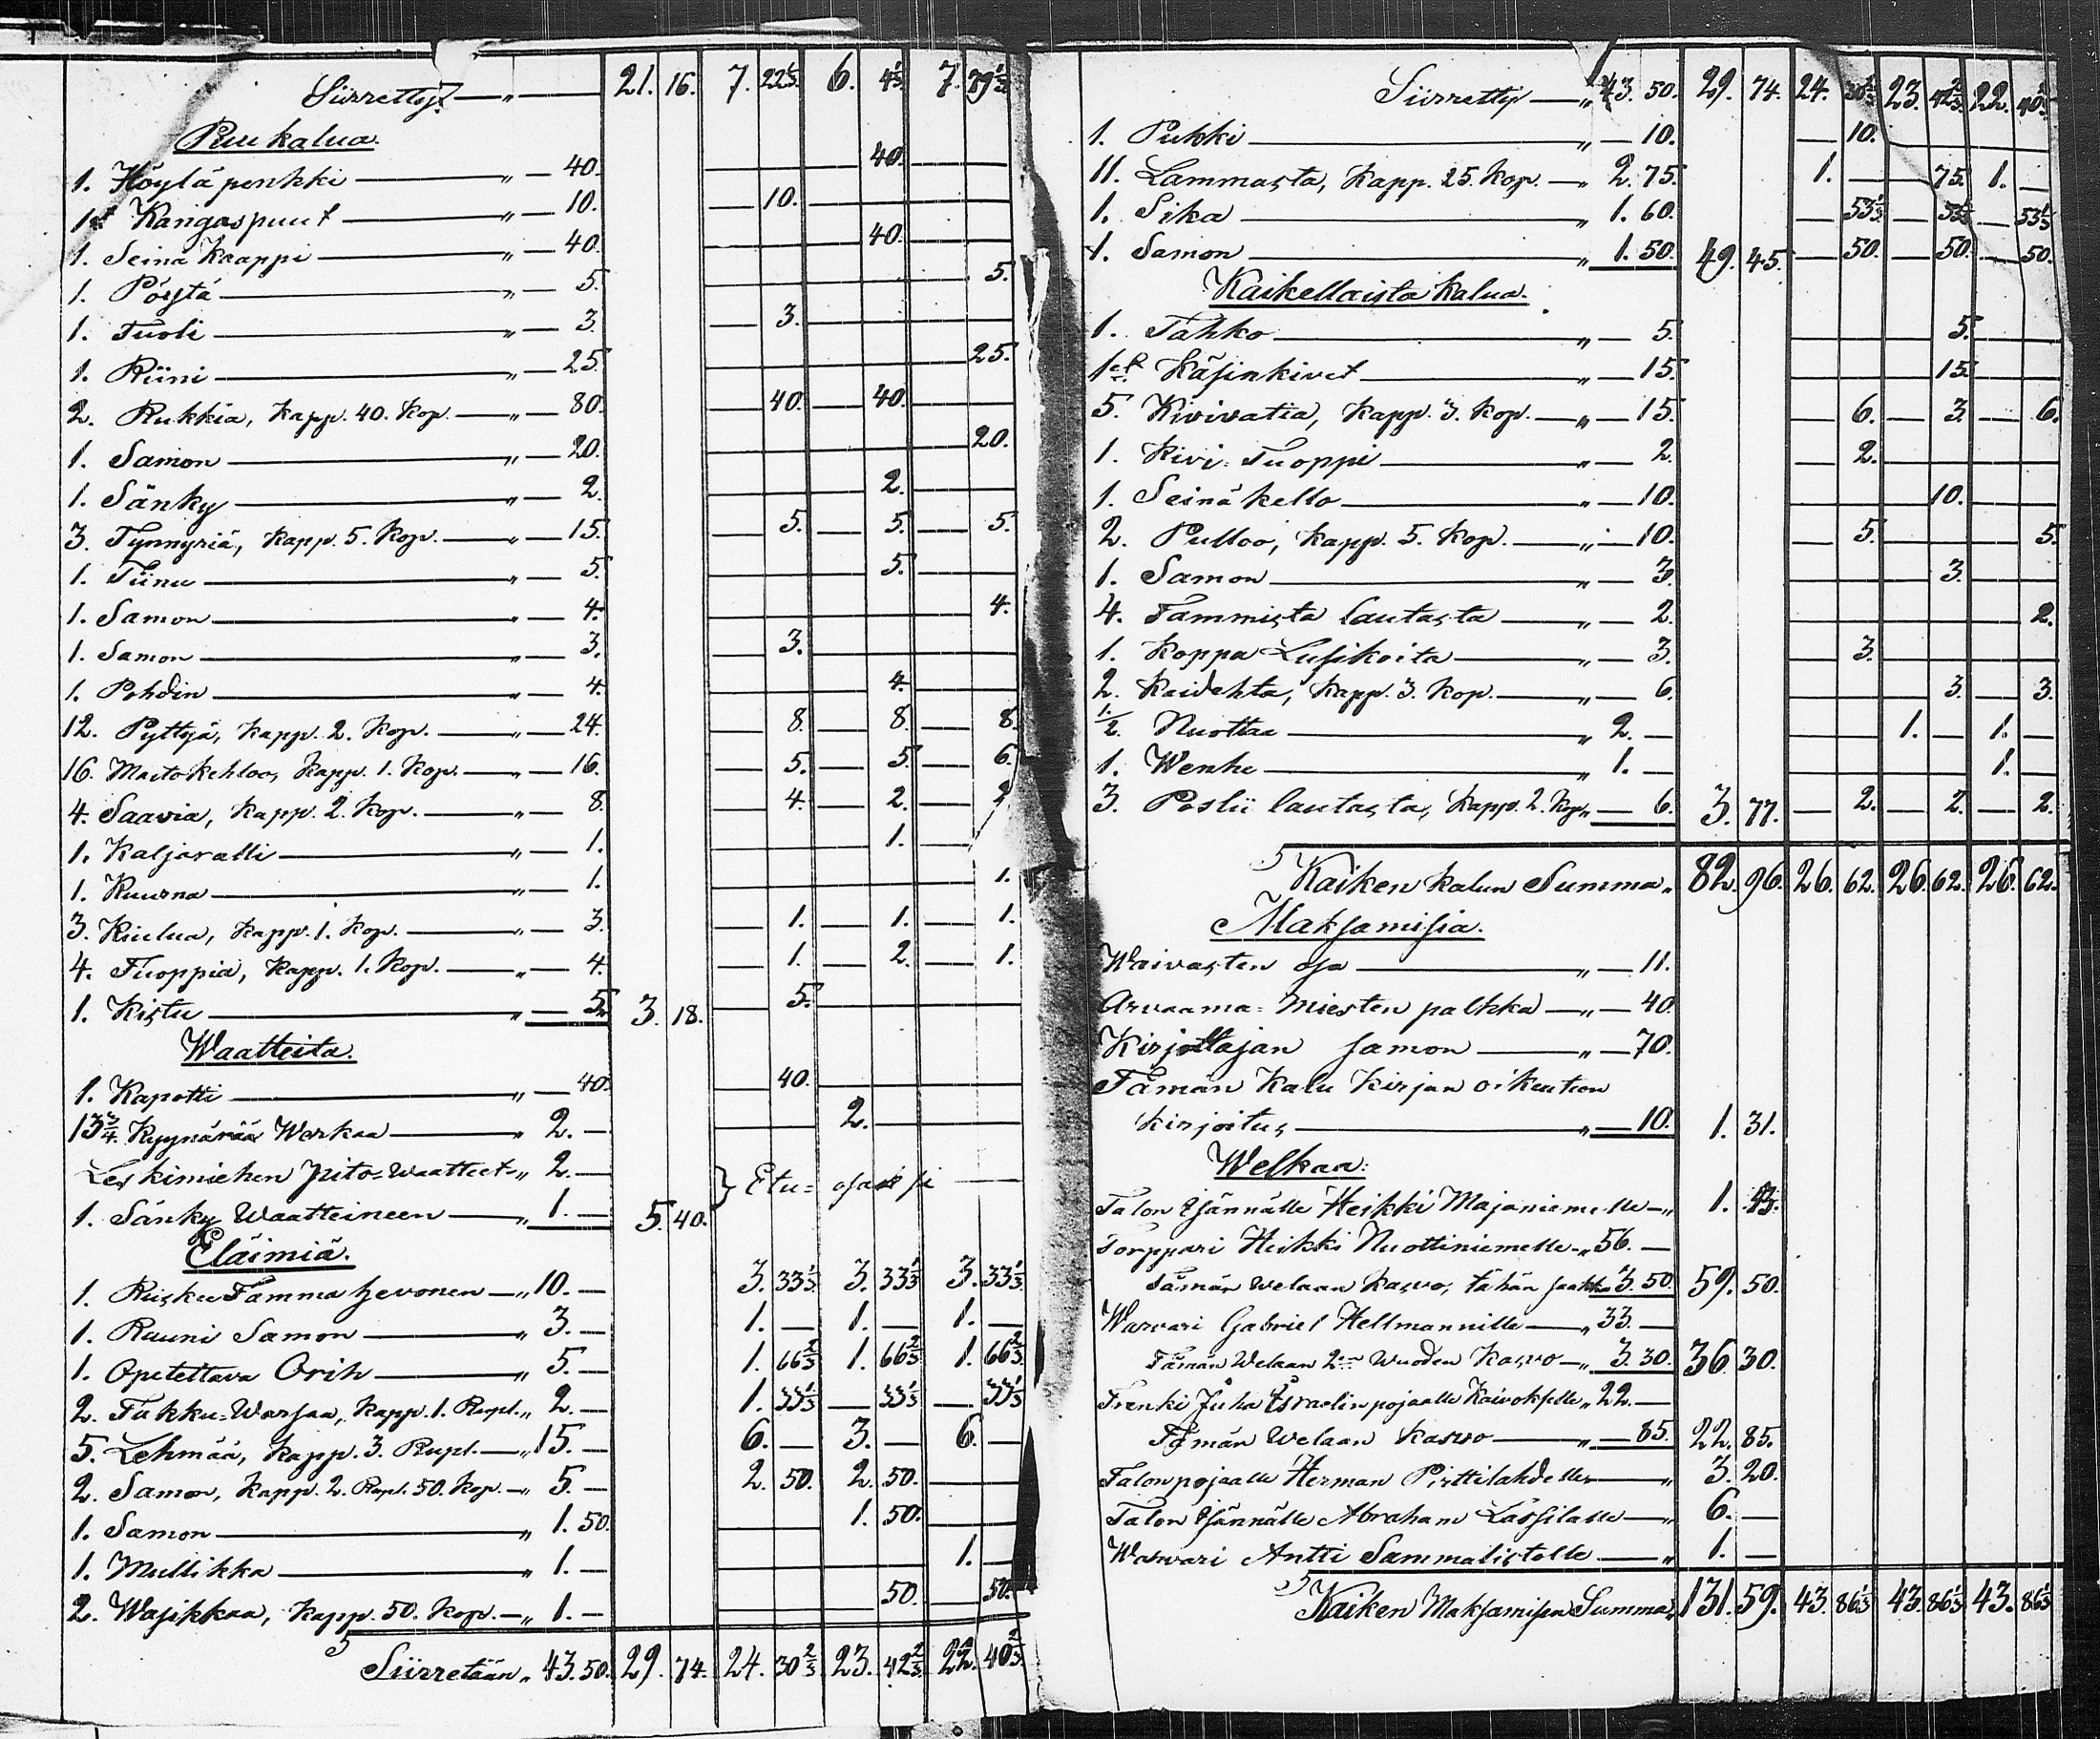 Siirrettyt — „ — 21. 16. 7. 22⅓. 6. 4⅓. 7. 89⅓.
Puukalua.
1. Höyläpenkki — „ — 40. — 40. —
1 Kangaspuut — „ — 10. — 10. —
1. Seinä Kaappi — „ — 40. — 40. —
1. Pöytä — „ — 5. — 5.
1. Tuoli — „ — 3. — 3. —
1. Kiini — „ — 25. — 25.
2. Rukkia, Kapp. 40. Kop. — „ — 80. — 40. — 40. —
1. Samon — „ — 20. — 20.
1. Sänky — „ — 2. — 2. —
3. Tynnyriä, Kapp. 5. Kop. — „ — 15. — 5. — 5. — 5.
1. Tiinu — „ — 5. — 5. —
1. Samon — „ — 4. — 4.
1. Samon — „ — 3. — 3. —
1. Pohdin — „ — 4. — 4. —
12. Pyttyä, Kapp. 2. Kop. — „ — 24. — 8. — 8. — 8.
16. Maitokehloo, Kapp. 1. Kop. — „ — 16. — 5. — 5. — 6.
4. Saavia, Kapp. 2. Kop. — „ — 8. — 4. — 2. — 2.
1. Kaljaratti — „ — 1. — 1. —
1. Kuurna — „ — 1. — 1.
3. Kiulua, Kapp. 1. Kop. — „ — 3. — 1. — 1. — 1.
4. Tuoppia, Kapp. 1. Kop. — „ — 4. — 1. — 2. — 1.
1. Kistu — „ — 5. 3. 18. — 5. —
Waatteita.
1. Kapotti — „ — 40. — 40. —
13¾. Kyynärää Werkaa — „ 2. — — 2. —
Leskimiehen Pito-waatteet „ 2. — } Etu-osaksi —
1. Sänky Waatteineen — „ 1. — 5. 40.
Eläimiä.
1. Ruskee Tamma hevonen — „ 10. — 3. 33⅓. 3. 33⅓. 3. 33⅓.
1. Ruuni Samon — „ 3. — 1. — 1. — 1. —
1. Opetettava Orih — „ 5. — 1. 66⅔. 1. 66⅔. 1. 66⅔.
2. Takku-Warsaa, Kapp. 1. Rupl. „ 2. — 1. 33⅓. — 33⅓. — 33⅓.
5. Lehmää, Kapp. 3. Rupl. — „ 15. — 6. — 3. — 6. —
2. Samon, Kapp. 2. Rupl. 50. Kop. — „ 5. — 2. 50. 2. 50. —
1. Samon — „ 1. 50. — 1. 50. —
1. Mullikka — „ 1. — — 1. —
2. Wasikkaa, Kapp. 50. Kop. — „ 1. — — 50. — 50.
Siirretään „ 43. 50. 29. 74. 24. 30⅔. 23. 42⅔. 22. 40⅔.
Siirrettyt — „ 43. 50. 29. 74. 24. 30⅔. 23. 42⅔. 22. 40⅔.
1. Pukki — „ — 10. — 10. —
11. Lammasta, Kapp. 25. Kop. — „ 2. 75. 1. — — 75. 1. —
1. Sika — „ 1. 60. — 53⅓. — 53⅓. — 53⅓.
1. Samon — „ 1. 50. 49. 45. — 50. — 50. — 50.
Kaikellaista kalua.
1. Tahko — „ — 5. — 5. —
1 Käsinkivet — „ — 15. — 15. —
5. Kivivatia, Kapp. 3. Kop. — „ — 15. — 6. — 3. — 6.
1. Kivi-Tuoppi — „ — 2. — 2. —
1. Seinäkello — „ — 10. — 10. —
2. Pulloo, Kapp. 5. Kop. — „ — 10. — 5. — 5.
1. Samon — „ — 3. — 3. —
4. Tammista lautasta — „ — 2. — 2.
1. Koppa Lusikoita — „ — 3. — 3. —
2. Kaidehta, Kapp. 3. Kop. — „ — 6. — 3. — 3.
½. Nuottaa — „ 2. — — 1. — 1. —
1. Wenhe — „ 1. — — 1. —
3. Poslii lautasta, Kapp. 2. Kop. „ — 6. 3. 77. — 2. — 2. — 2.
Kaiken kalun Summa „ 82. 96. 26. 62. 26. 62. 26. 62.
Maksamisia.
Waivasten osa — „ — 11.
Arvaama-Miesten palkka — „ — 40.
Kirjottajan samon — „ — 70.
Tämän Kalu Kirjan oikeuteen
kirjoitus — „ — 10. 1. 31.
Welkaa:
Talon Isännälle Heikki Majaniemelle — „ 1. 43.
Torppari Heikki Nuottiniemelle „ 56. —
Tämän welaan Kasvo, tähän saakka 3. 50. 59. 50.
Warvari Gabriel Hellmannille — „ 33. —
Tämän Welaan 2 Wuoden Kasvo — „ 3. 30. 36 30.
Trenki Juha Israelinpojaalle Kaivokselle „ 22. —
Tämän Welaan Kasvo — „ — 85. 22. 85.
Talonpojaalle Herman Pirttilahdelle — „ 3. 20.
Talon Isännälle Abraham Lassilalle — „ 6. —
Warvari Antti Sammalistolle — „ 1. —
Kaiken Maksamisen Summa „ 131. 59. 43. 86⅓. 43. 86⅓. 43. 86⅓.